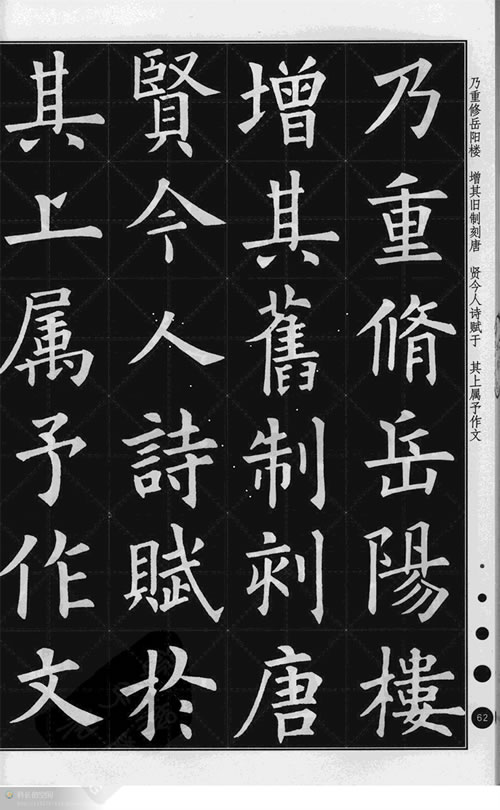 乃重修岳阳楼 增其旧制刻唐 贤今人诗赋于 其上属予作文
乃重脩岳陽樓
增其舊制刻唐
賢今人詩賦於
其上属予作文
62